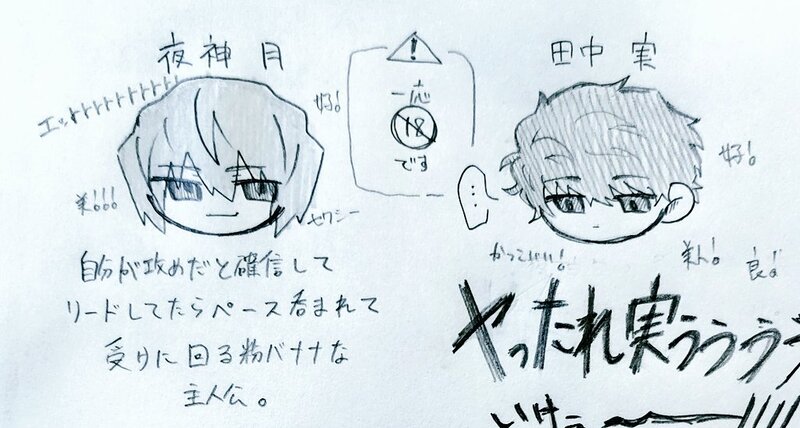 夜神月
エッットトトトトトトトト
好!
美!!!
セクシー
自分が攻めだと確信して
リードしてたらペース呑まれて
受けに回る粉バナナな
主人公。
!
一応
18
です
田中 実
…
好!
かっこいい!
美人!
良!
ヤったれ実ううう
いけぇー